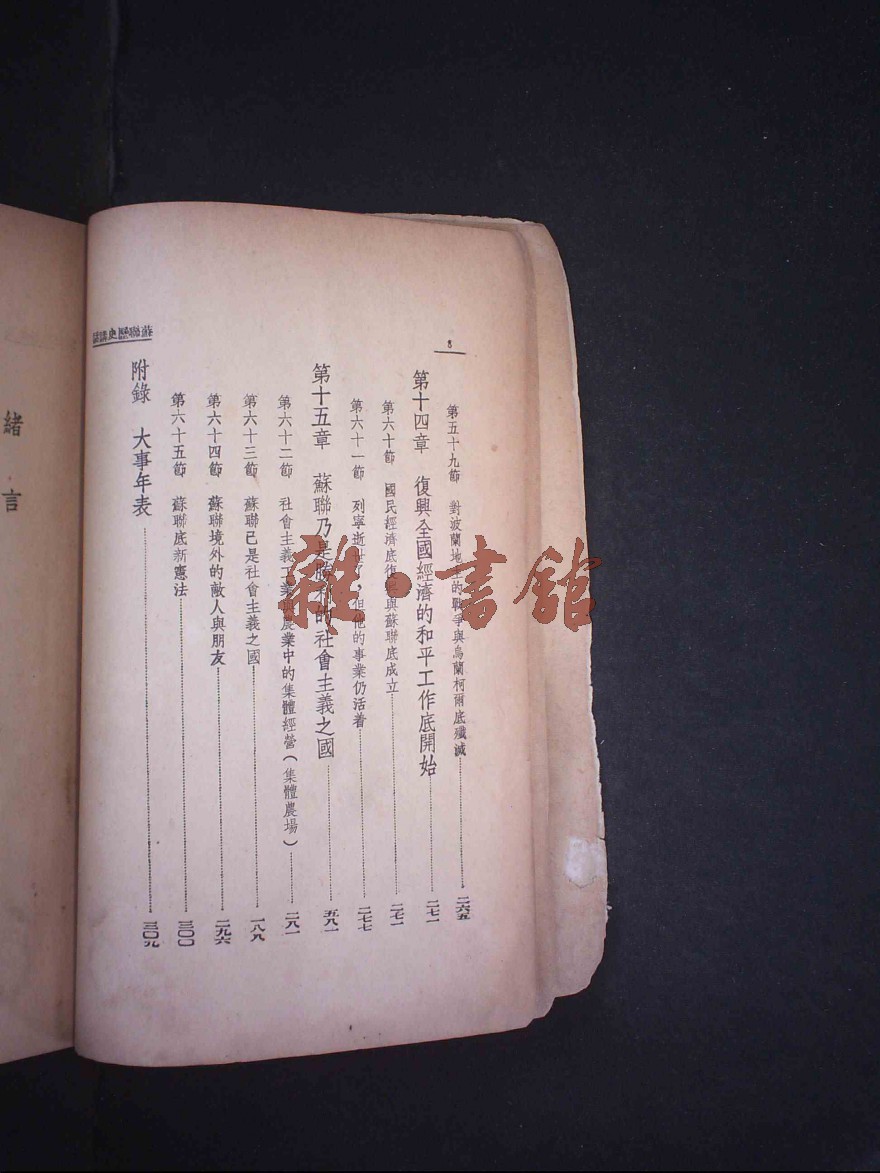 8
第五十九節 對波蘭地主的戰爭與烏蘭柯爾底殲滅 二六五
第十四章 復興全國經濟的和平工作底開始 二七一
第六十節 國民經濟底復興與蘇聯底成立 二七一
第六十一節 列寧逝世了，但他的事業仍活着 二七七
第十五章 蘇聯乃是勝利的社會主義之國 五八一
第六十二節 社會主義工業與農業中的集體經營（集體農場） 二八一
第六十三節 蘇聯已是社會主義之國 一八九
第六十四節 蘇聯境外的敵人與朋友 二九六
第六十五節 蘇聯底新憲法 三〇〇
附錄 大事年表 三〇九
蘇聯歷史講話
緒言
雜·書館